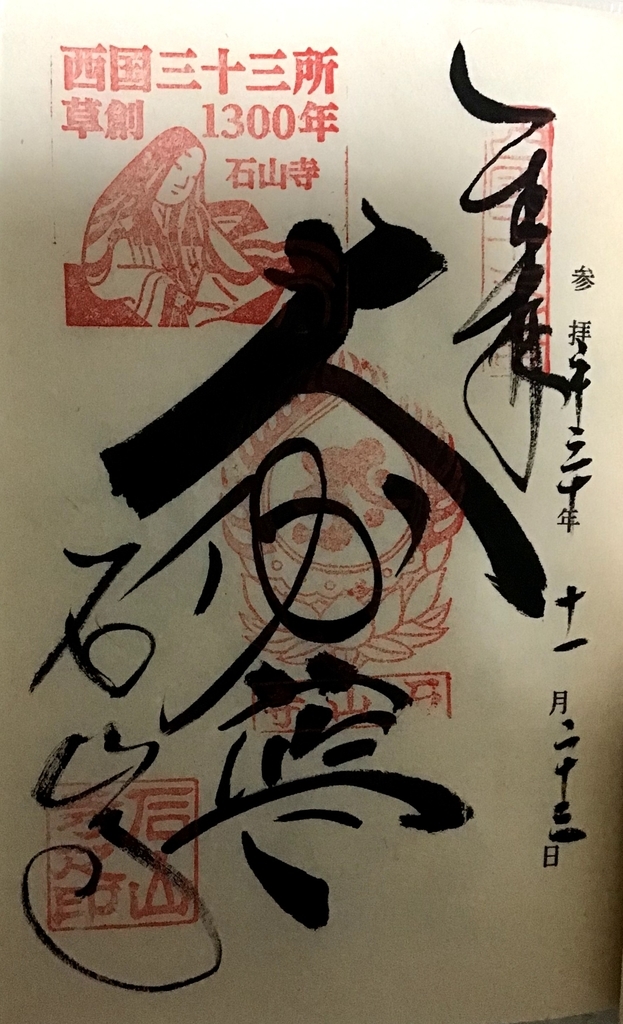 西国三十三所
草創 1300年
石山寺
参拝 平三十年 十一月二十三日
大伽藍
石山寺
石山寺